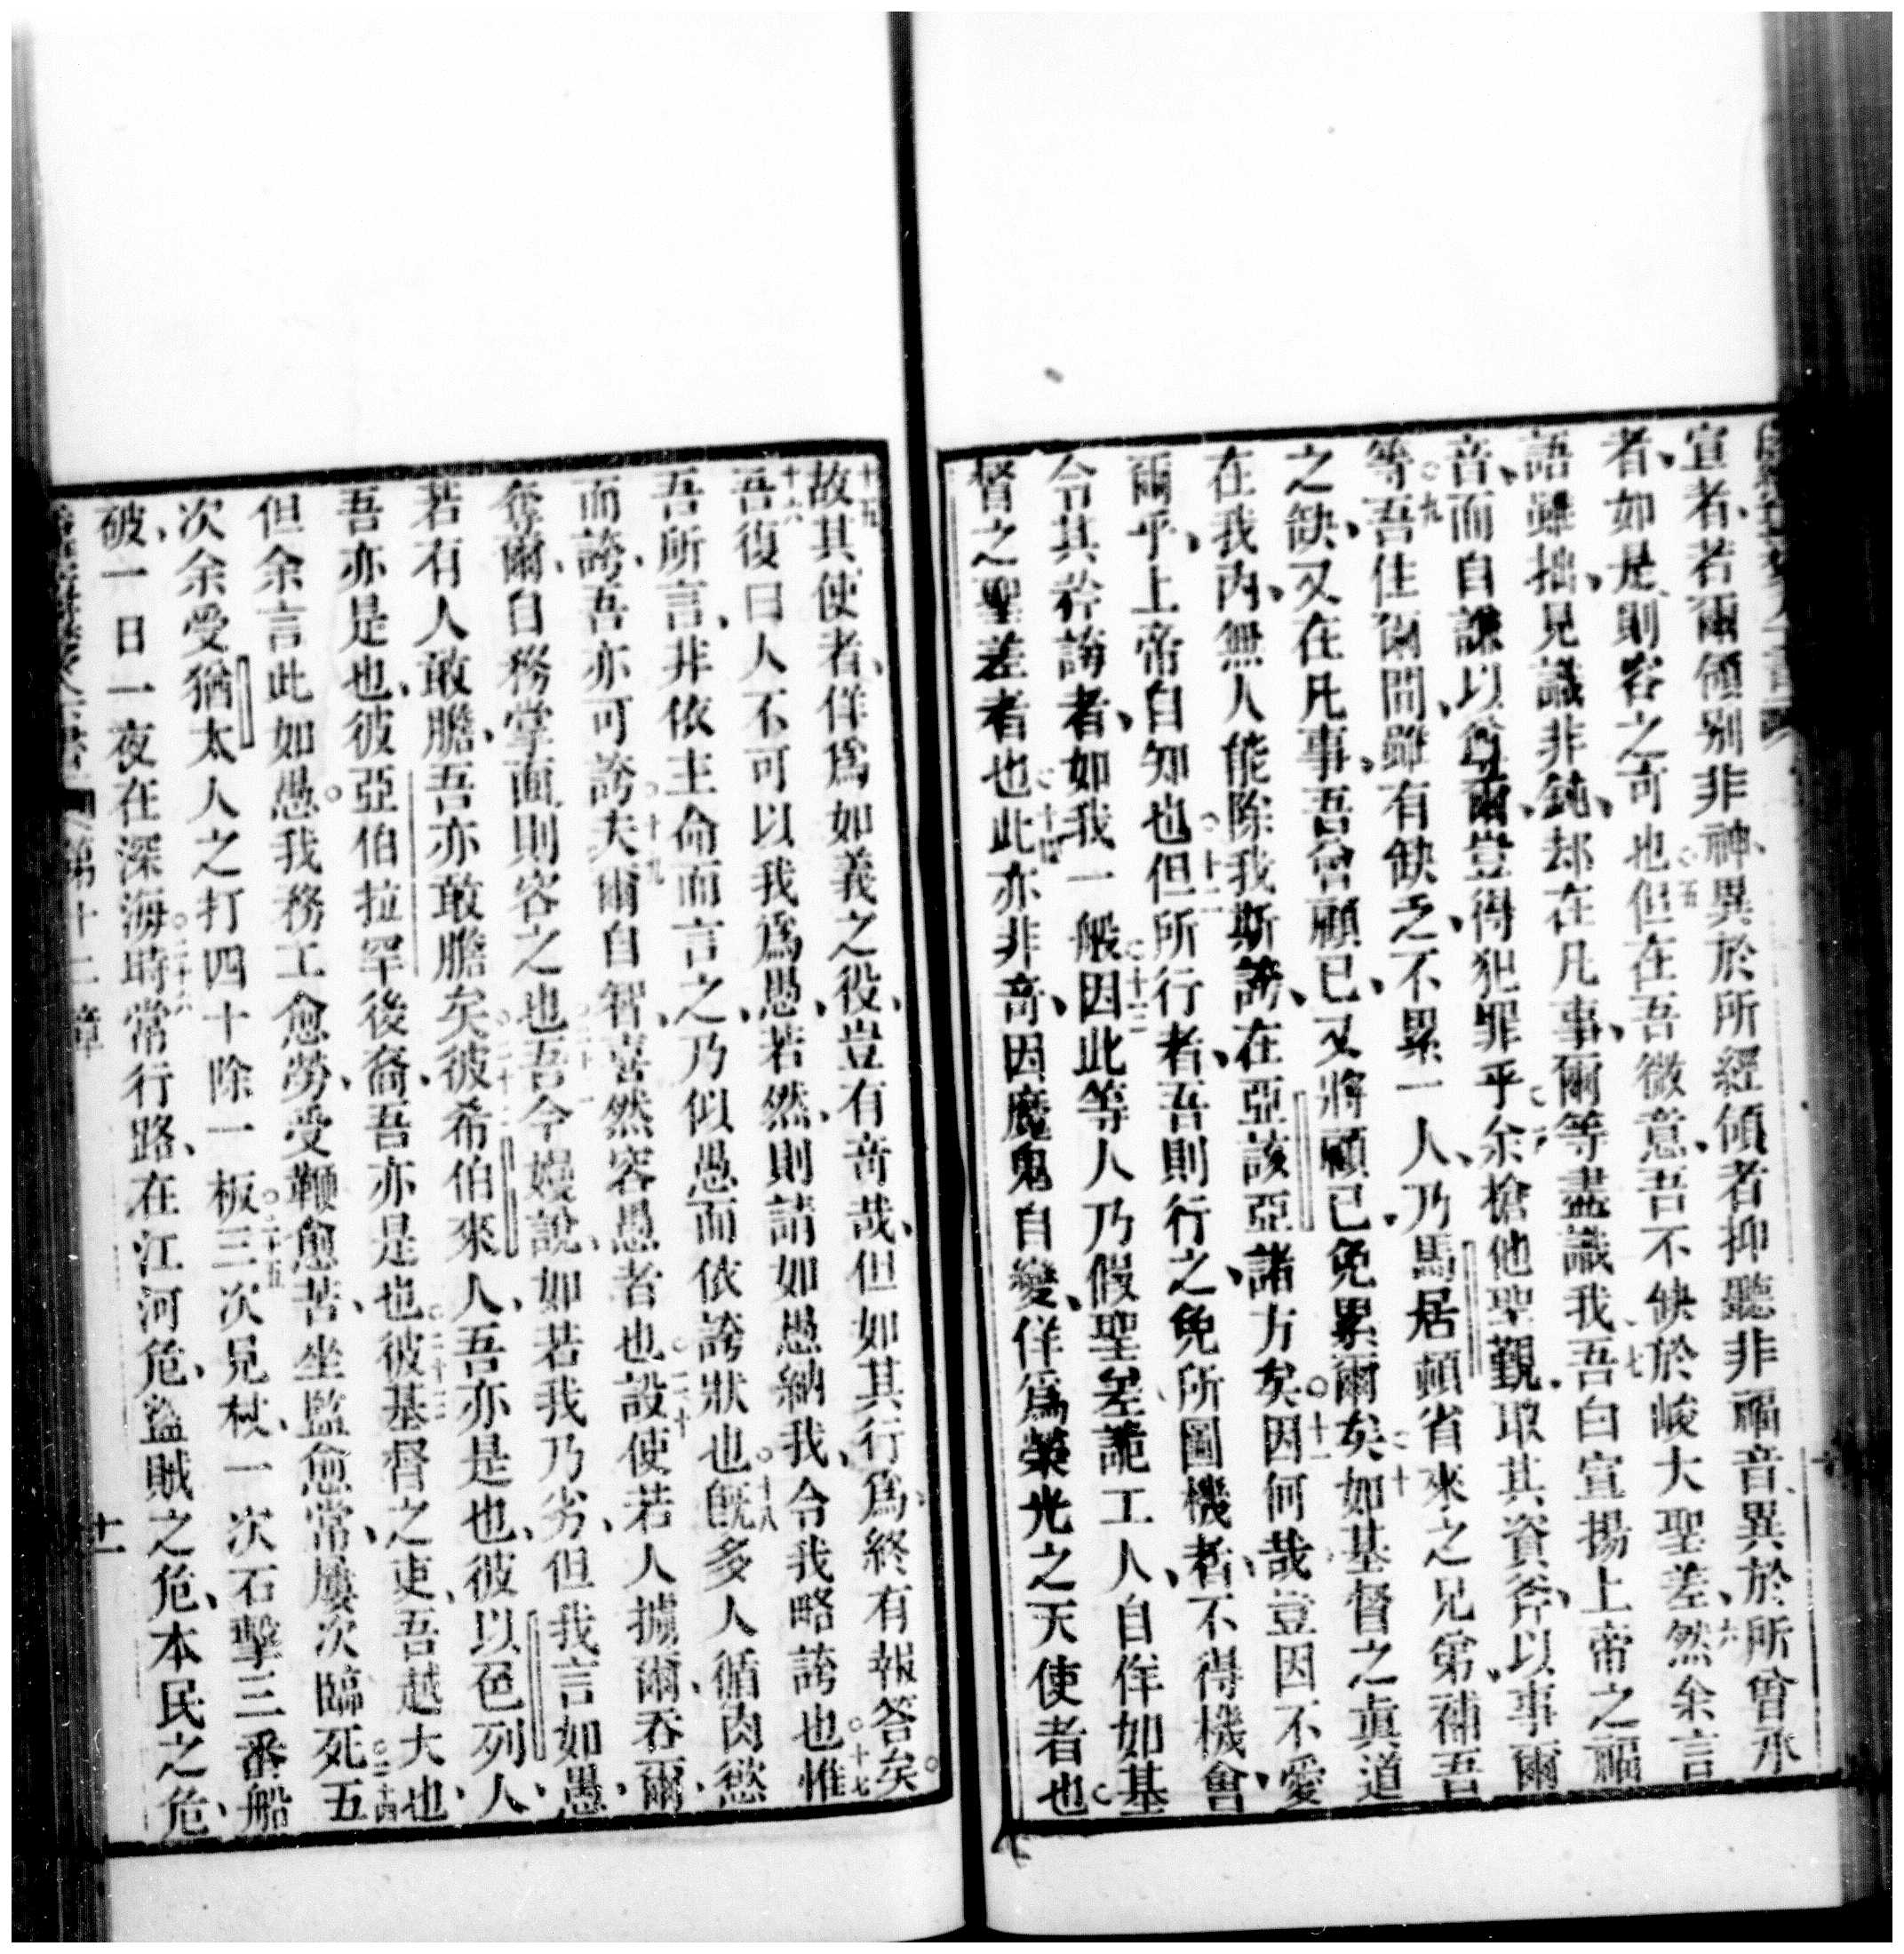 宣者、若爾傾别非神、異於所經傾者抑聽非福音、異於所曾承
者、如是則容之可也○五但在吾微意、吾不缺於峻大聖差、○六然余言
語雖拙、見識非鈍、却在凡事、爾等盡識我○七吾白宣揚上帝之福
音、而自謙以尊爾、豈得犯罪乎○八余搶他聖覲、取其資斧、以事爾
等○九吾住爾間、雖有缺乏、不累一人、乃馬居頓省來之兄弟、補吾
之缺、又在凡事、吾曾顧已、又將顧已、免累爾矣○十如基督之眞道
在我內、無人能除我斯誇、在亞該亞諸方矣○十一因何哉豈因不愛
爾乎、上帝自知也○十二但所行者、吾則行之、免所圖機者、不得機會、
令其矜誇者、如我一般○十三因此等人乃假聖差詭工人、自佯如基
督之聖差者也○十四此亦非奇、因魔鬼自變、佯爲榮光之天使者也○
十五故其使者、佯爲如義之役、豈有奇哉、但如其行爲終有報答矣○
十六吾復曰人不可以我爲愚、若然、則請如愚納我、令我略誇也○十七惟
吾所言、非依主命而言之、乃似愚而依誇狀也○十八既多人循肉慾
而誇、吾亦可誇○十九夫爾自智、喜然容愚者也○二十設使若人擄爾、吞爾、
奪爾、自務掌面、則容之也○二十一吾今嫚說、如若我乃劣、但我言如愚、
若有人敢膽、吾亦敢膽矣○二十二彼希伯來人、吾亦是也、彼以色列人、
吾亦是也、彼亞伯拉罕後裔、吾亦是也○二十三彼基督之吏、吾越大也、
但余言此如愚○我務工愈勞、受鞭愈苦、坐監愈常、屢次臨死○二十四五
次余受猶太人之打四十除一板○二十五三次見杖、一次石擊三番船
破、一日一夜在深海○二十六時常行路、在江河危、盜賊之危、本民之危、
第十一章
十一